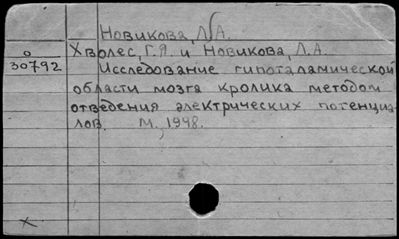 Новикова, Л.А.
Хволес, Г.Я. и Новикова, Л.А.
о
30792
Исследование гипоталамической
области мозга кролика методом
отведения электрических потенциа-
лов. М., 1948.
x